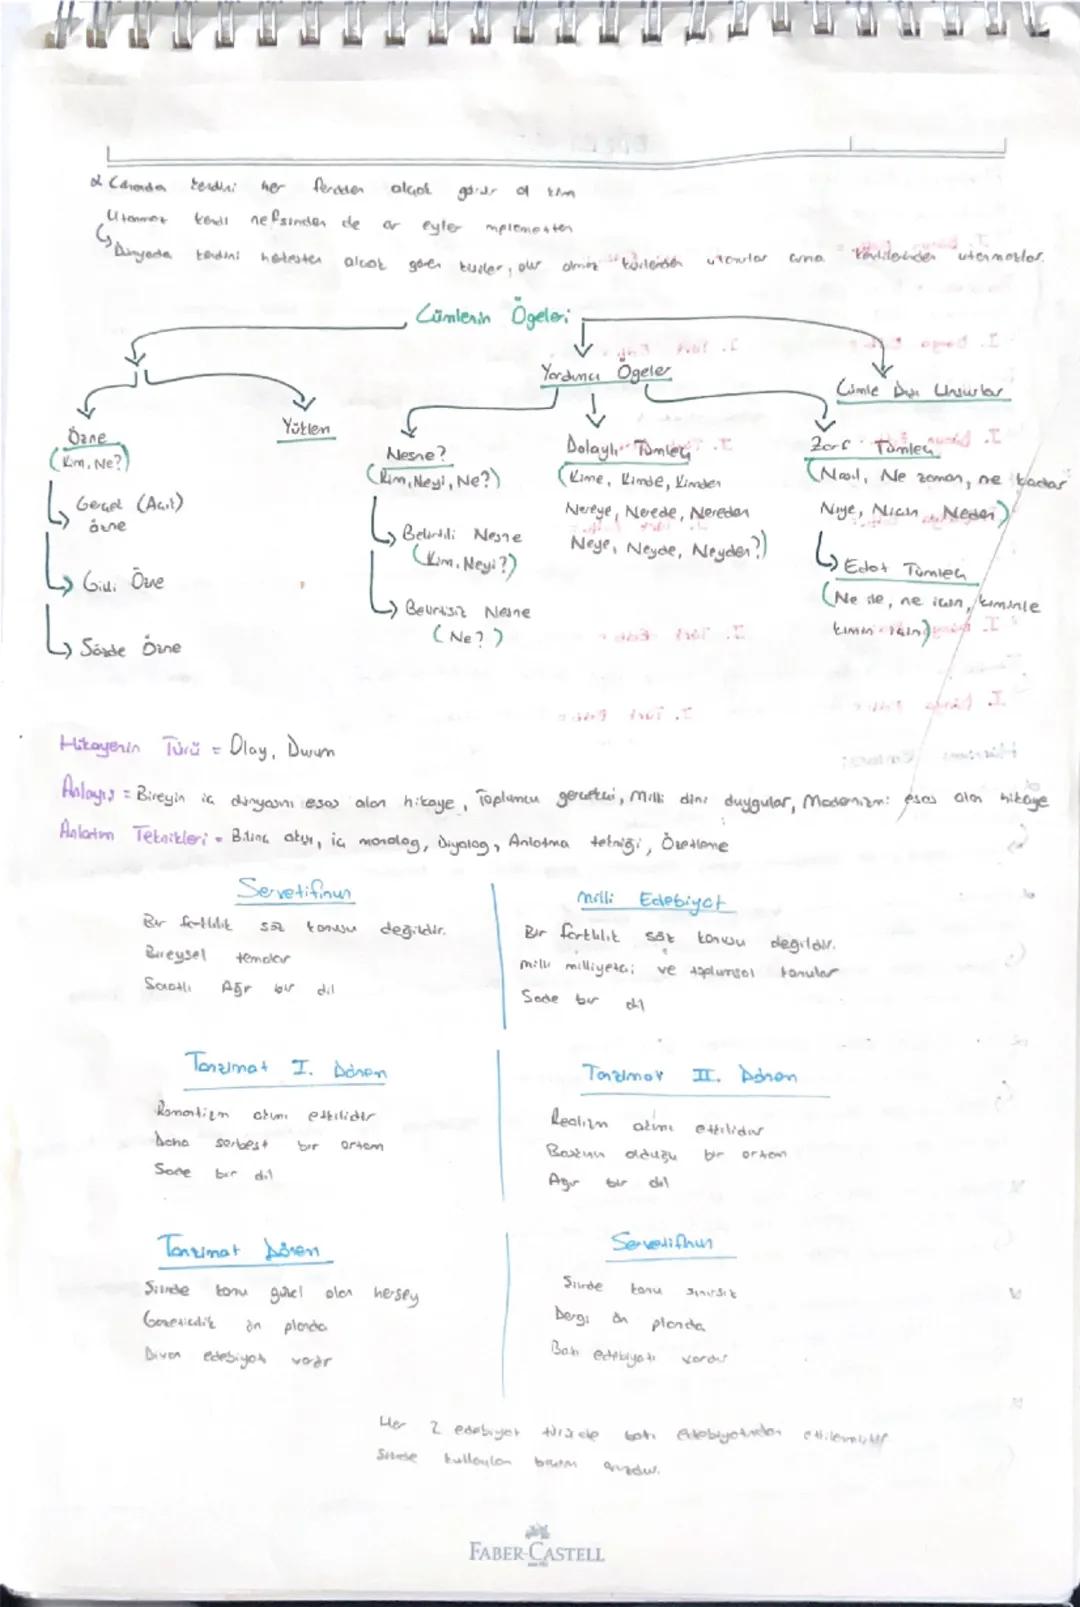 Cihanda kendini her ferdden alçak görür ol kim
Utanmaz kendi nefsinden de ar eyler
Dünyada kendini herkesten alçak gören kişiler, utanırlar ama kendilerinden utanmazlar.
Cümlenin Ögeleri
Yardımcı Ögeler
Cümle Dışı Unsurlar
Özne
(Kim, Ne?)
Gerçek (Açık) özne
Gizli Özne
Sözde Özne
Yüklem
Nesne?
(Kim, Neyi, Ne?)
Belirtili Nesne
(Kim, Neyi?)
Belirtisiz Nesne
(Ne?)
Dolaylı Tümleç
(Kime, Kimde, Kimden
Nereye, Nerede, Nereden
Neye, Neyde, Neyden?)
Zarf Tümleç
(Nasıl, Ne zaman, ne kadar
Niye, Niçin, Neden)
Edat Tümleç
(Ne ile, ne için, kiminle
kimin için)
Hikayenin Türü = Olay, Durum
Anlayış = Bireyin iç dünyasını esas alan hikaye, Toplumcu gerçekçi, Milli dini duygular, Modernizmi esas alan hikaye
Anlatım Teknikleri = Bilinç akışı, iç monolog, Diyalog, Anlatma tekniği, Özetleme
Servetifünun
Bir farklılık söz konusu değildir.
Bireysel temalar
Sanatlı Ağır bir dil
Milli Edebiyat
Bir farklılık söz konusu değildir.
milli milliyetçi ve toplumsal konular
Sade bir dil
Tanzimat I. Dönem
Romantizm akımı etkilidir
Daha serbest bir ortam
Sade bir dil
Tanzimat II. Dönem
Realizm akımı etkilidir
Baskının olduğu bir ortam
Ağır bir dil
Tanzimat Dönem
Şiirde konu güzel olan herşey
Gazetecilik ön planda
Divan edebiyatı vardır
Servetifünun
Şiirde konu sınırsız
Dergi ön planda
Batı edebiyatı vardır
Her 2 edebiyat türü de batı edebiyatından etkilenmiştir
Şiirde kullanılan birim aruzdur.
FABER-CASTELL